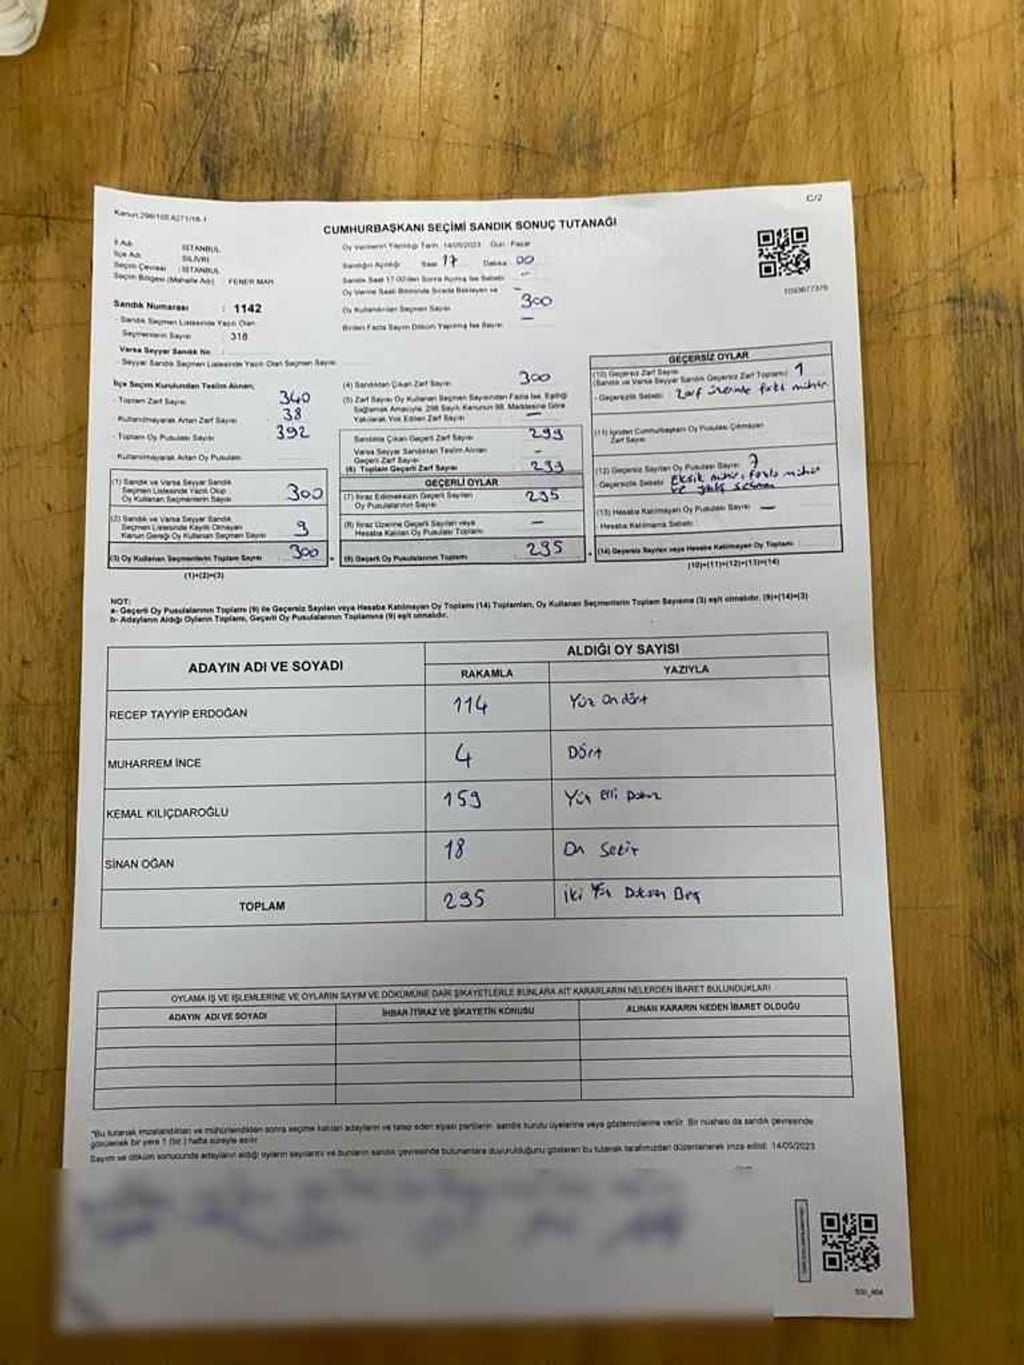 Kanun:298/105,6271/18-1
C/2
CUMHURBAŞKANI SEÇİMİ SANDIK SONUÇ TUTANAĞI
İl Adı : İSTANBUL
İlçe Adı : SİLİVRİ
Seçim Çevresi : İSTANBUL
Seçim Bölgesi (Mahalle Adı) FENER MAH.
Sandık Numarası : 1142
- Sandık Seçmen Listesinde Yazılı Olan
Seçmenlerin Sayısı : 318
Varsa Seyyar Sandık No :
- Seyyar Sandık Seçmen Listesinde Yazılı Olan Seçmen Sayısı :
Oy Vermenin Yapıldığı Tarih: 14/05/2023 Gün: Pazar
Sandığın Açıldığı Saat 17 Dakika 00
Sandık Saat 17:00'den Sonra Açılmış İse Sebebi: -
Oy Verme Saati Bitiminde Sırada Bekleyen ve -
Oy Kullandırılan Seçmen Sayısı 300
Birden Fazla Sayım Döküm Yapılmış İse Sayısı: -
İlçe Seçim Kurulundan Teslim Alınan;
- Toplam Zarf Sayısı 340
Kullanılmayarak Artan Zarf Sayısı 38
- Toplam Oy Pusulası Sayısı 392
Kullanılmayarak Artan Oy Pusulası
(1) Sandık ve Varsa Seyyar Sandık
Seçmen Listesinde Yazılı Olup
Oy Kullanan Seçmenlerin Sayısı 300
(2) Sandık ve Varsa Seyyar Sandık
Seçmen Listesinde Kayıtlı Olmayan
Kanun Gereği Oy Kullanan Seçmen Sayısı
(3) Oy Kullanan Seçmenlerin Toplam Sayısı 300
(1)+(2)=(3)
(4) Sandıktan Çıkan Zarf Sayısı 300
(5) Zarf Sayısı Oy Kullanan Seçmen Sayısından Fazla İse, Eşitliği
Sağlamak Amacıyla, 298 Sayılı Kanunun 98. Maddesine Göre
Yakılarak Yok Edilen Zarf Sayısı -
Sandıkta Çıkan Geçerli Zarf Sayısı 299
Varsa Seyyar Sandıktan Teslim Alınan
Geçerli Zarf Sayısı -
(6) Toplam Geçerli Zarf Sayısı 299
GEÇERLİ OYLAR
(7) İtiraz Edilmeksizin Geçerli Sayılan
Oy Pusulalarının Sayısı 295
(8) İtiraz Üzerine Geçerli Sayılan veya
Hesaba Katılan Oy Pusulası Toplamı -
(9) Geçerli Oy Pusulalarının Toplamı 295
GEÇERSİZ OYLAR
(10) Geçersiz Zarf Sayısı
(Sandık ve Varsa Seyyar Sandık Geçersiz Zarf Toplamı) 1
- Geçersizlik Sebebi: Zarf üzerinde farklı mühür
(11) İçinden Cumhurbaşkanı Oy Pusulası Çıkmayan
Zarf Sayısı
(12) Geçersiz Sayılan Oy Pusulası Sayısı 7
- Geçersizlik Sebebi: Eksik mühür, fazla mühür
(13) Hesaba Katılmayan Oy Pusulası Sayısı -
Hesaba Katılmama Sebebi
(14) Geçersiz Sayılan veya Hesaba Katılmayan Oy Toplamı
(10)+(11)+(12)+(13)=(14)
NOT:
a- Geçerli Oy Pusulalarının Toplamı (9) ile Geçersiz Sayılan veya Hesaba Katılmayan Oy Toplamı (14) Toplamları, Oy Kullanan Seçmenlerin Toplam Sayısına (3) eşit olmalıdır. (9)+(14)=(3)
b- Adayların Aldığı Oyların Toplamı, Geçerli Oy Pusulalarının Toplamına (9) eşit olmalıdır.
ADAYIN ADI VE SOYADI
ALDIĞI OY SAYISI
RAKAMLA YAZIYLA
RECEP TAYYİP ERDOĞAN 114 Yüz Ondört
MUHARREM İNCE 4 Dört
KEMAL KILIÇDAROĞLU 159 Yüz elli Dokuz
SİNAN OĞAN 18 On Sekiz
TOPLAM 295 İki Yüz Doksan Beş
OYLAMA İŞ VE İŞLEMLERİNE VE OYLARIN SAYIM VE DÖKÜMÜNE DAİR ŞİKAYETLERLE BUNLARA AİT KARARLARIN NELERDEN İBARET BULUNDUKLARI
ADAYIN ADI VE SOYADI İHBAR İTİRAZ VE ŞİKAYETİN KONUSU ALINAN KARARIN NEDEN İBARET OLDUĞU
"Bu tutanak imzalandıktan ve mühürlendikten sonra seçime katılan adayların ve talep eden siyasi partilerin, sandık kurulu üyelerine veya gözlemcilerine verilir. Bir nüshası da sandık çevresinde
görülecek bir yere 1 (bir) hafta süreyle asılır.
Sayım ve döküm sonucunda adayların aldığı oyların sayılarını ve bunların sandık çevresinde bulunanlara duyurulduğunu gösteren bu tutanak tarafımızdan düzenlenerek imza edildi. 14/05/2023